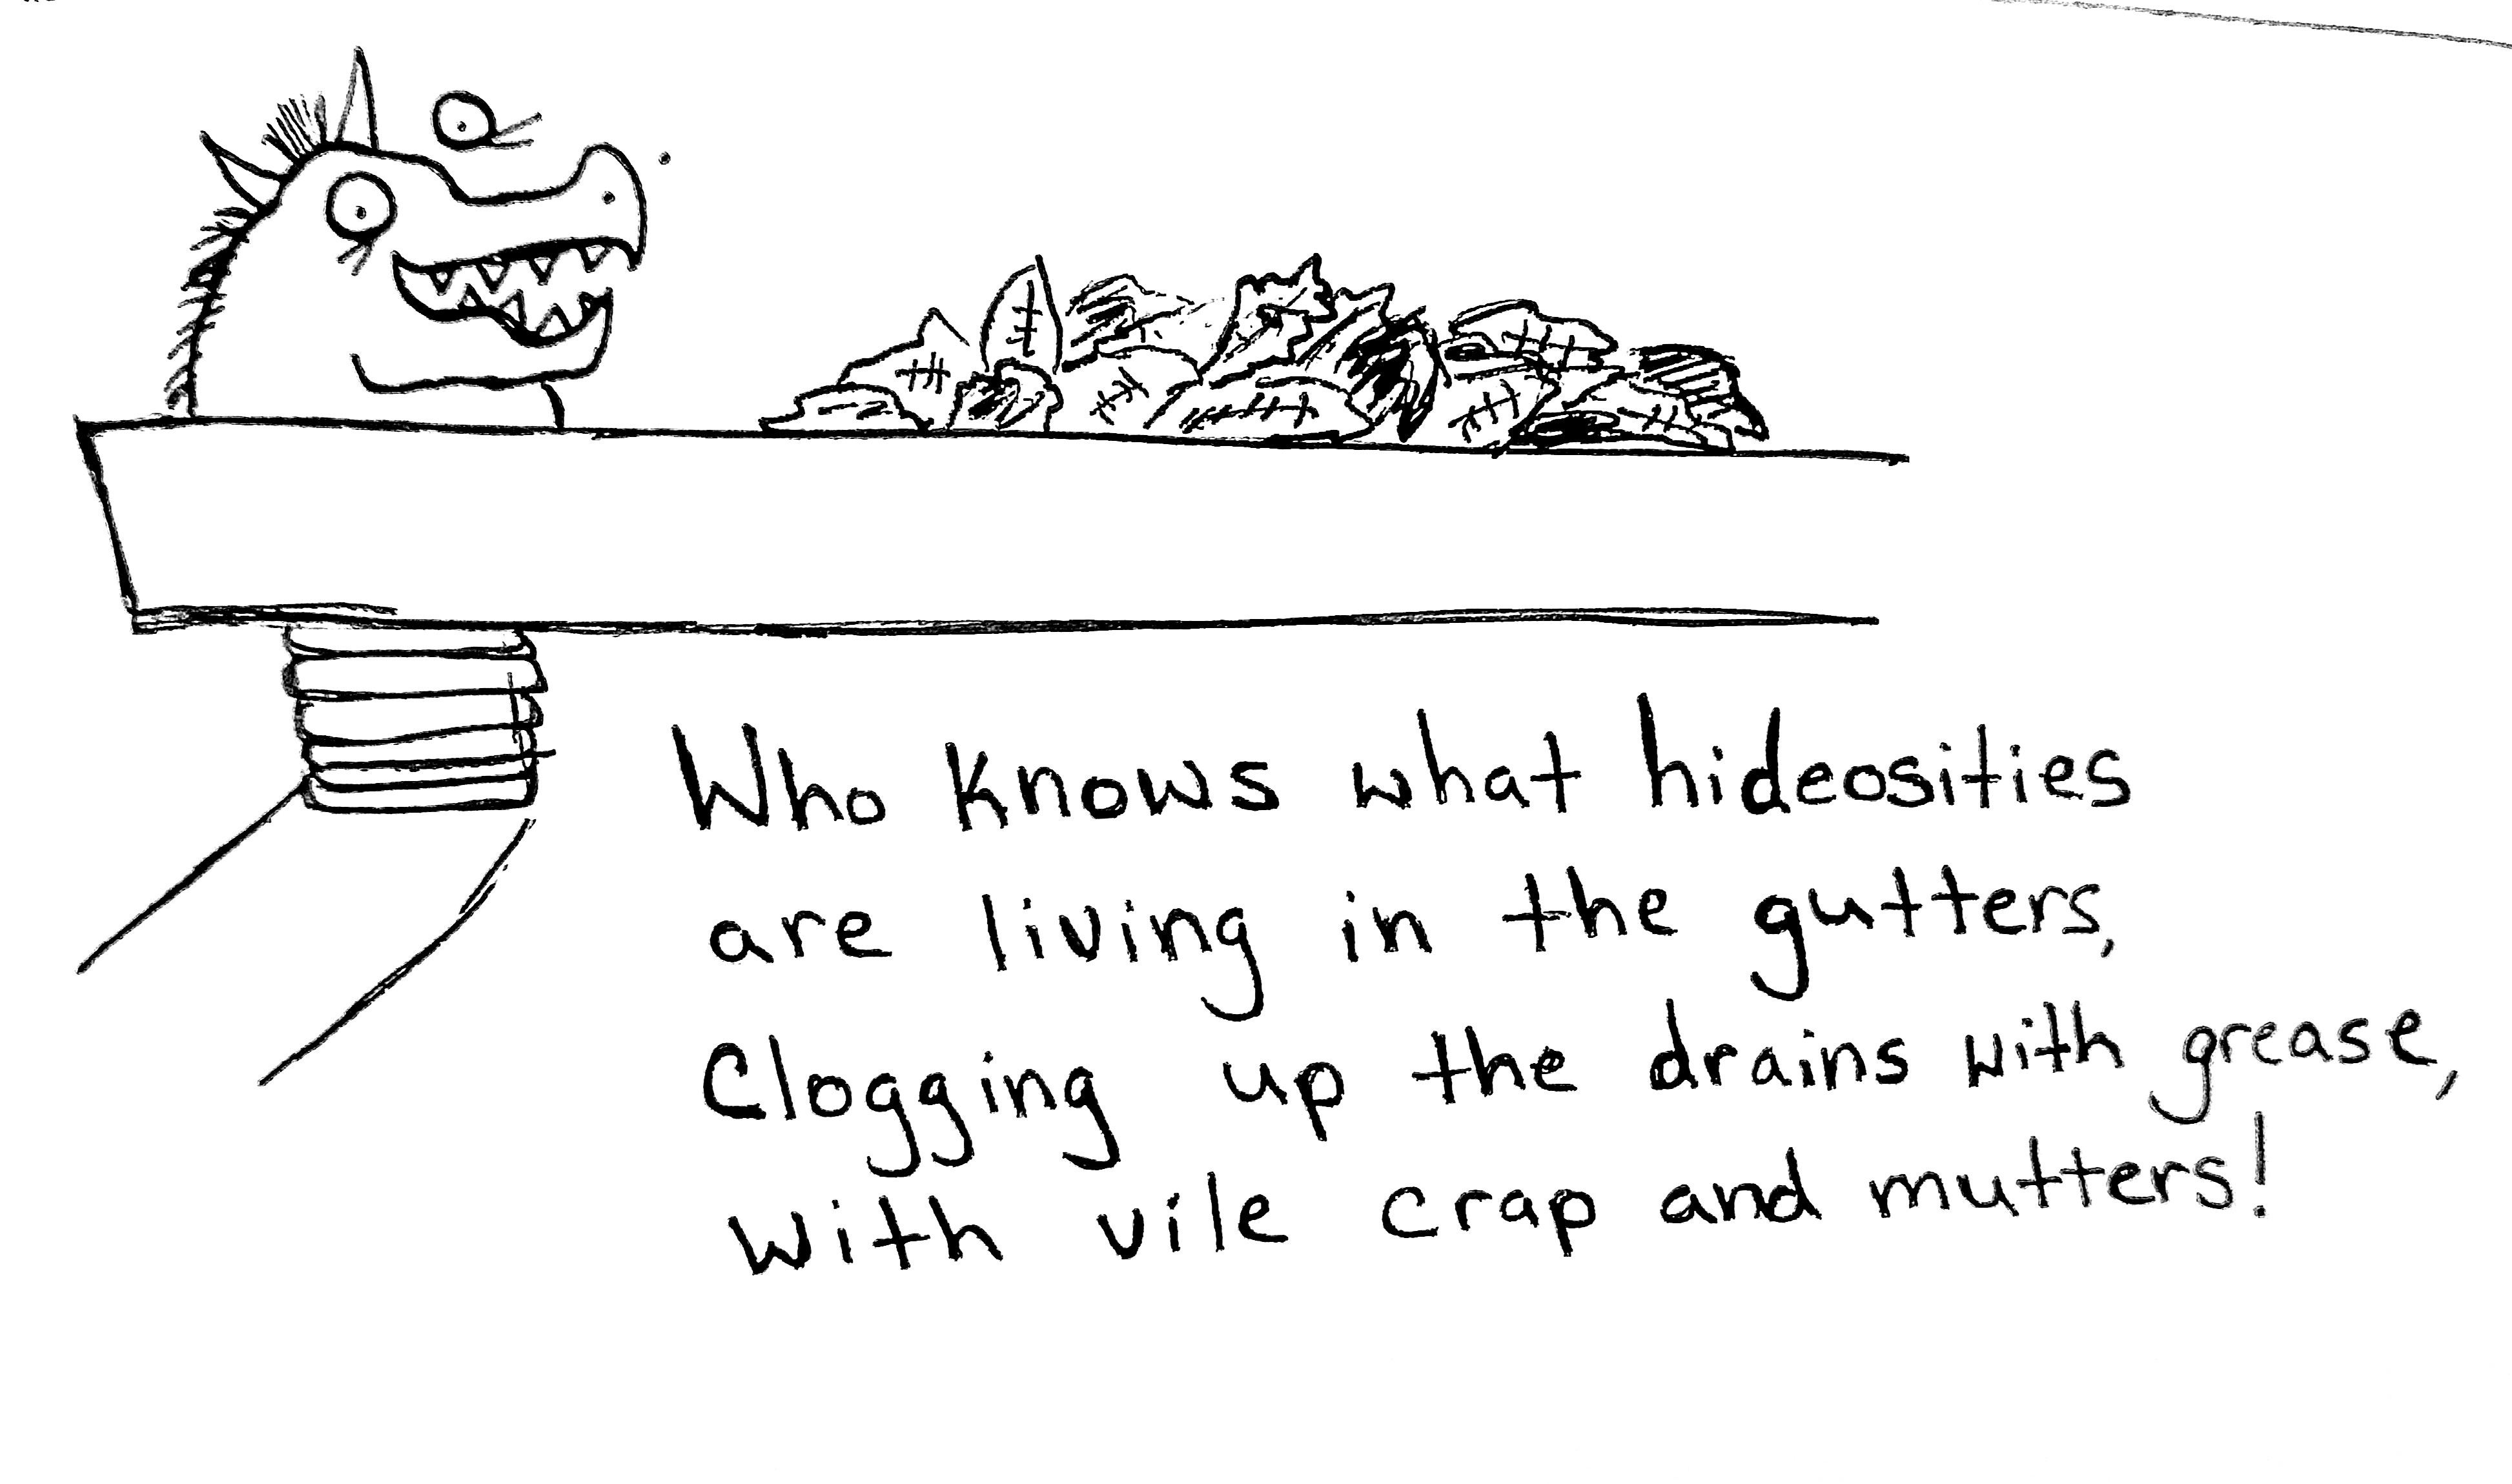 Who knows what hideosities
are living in the gutters,
Clogging up the drains with grease,
with vile crap and mutters!